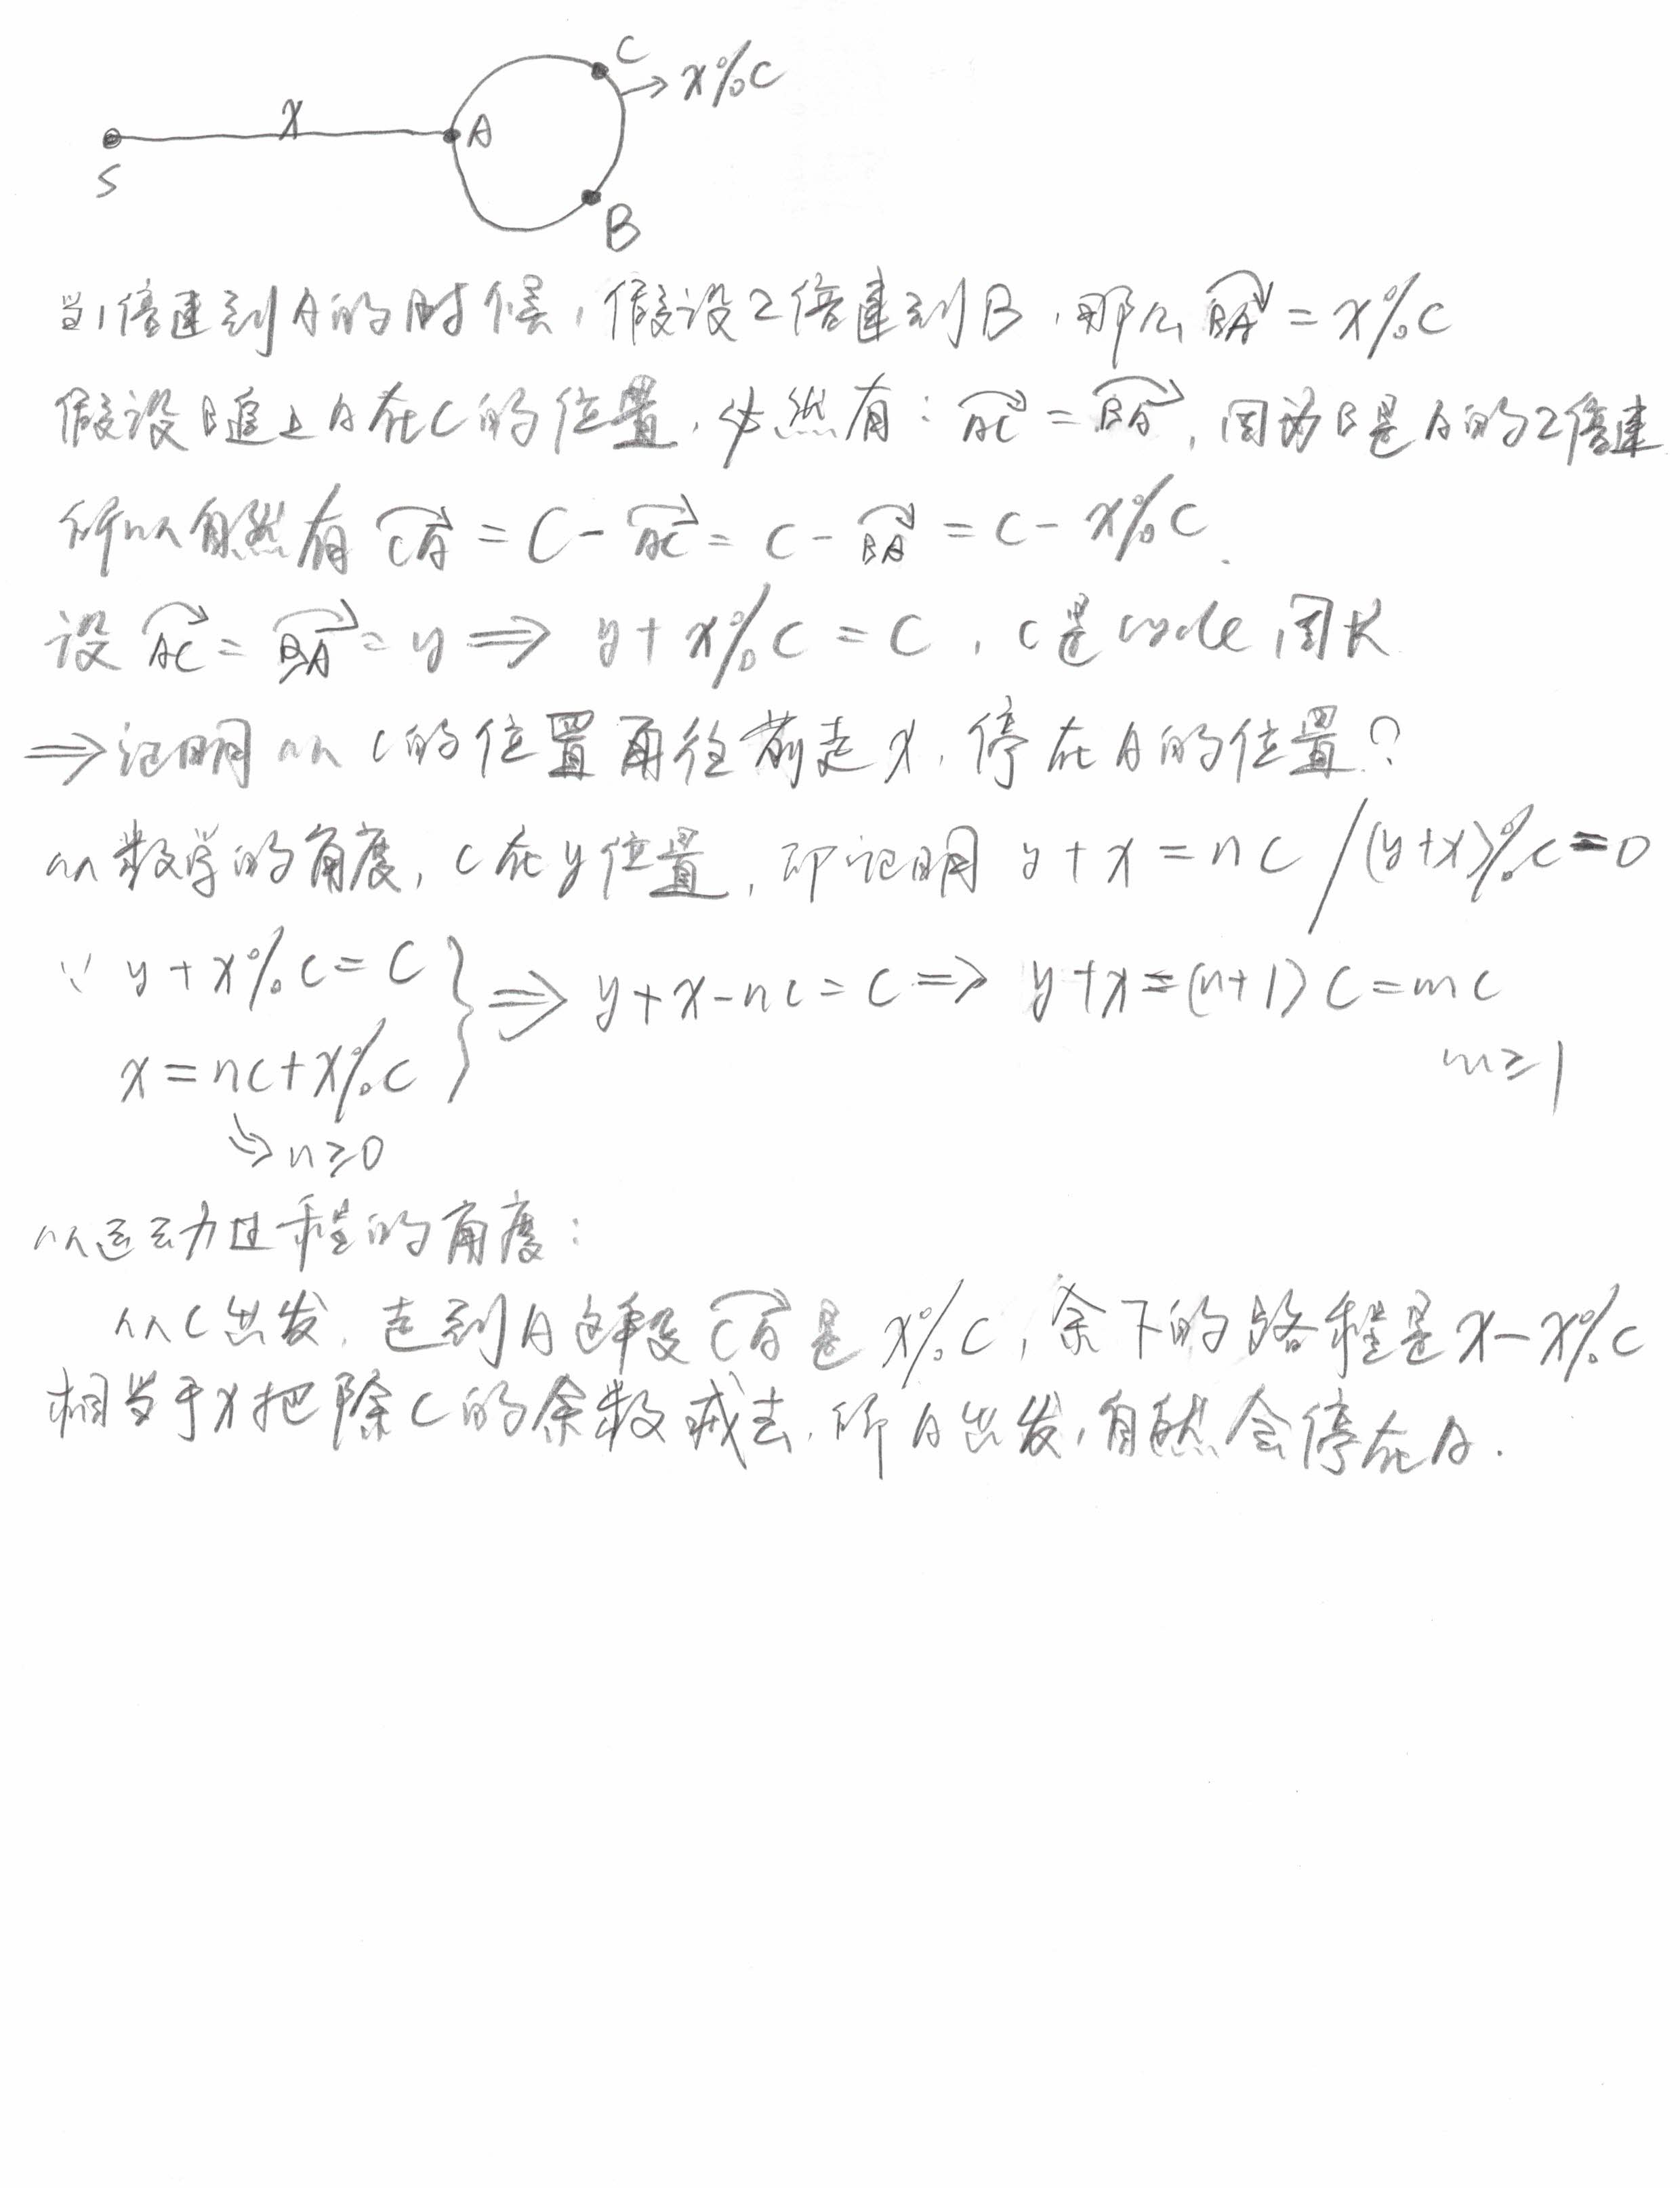 C
x%C
x
A
S
B
当1倍速到A的时候,假设2倍速到B,那么 BA = x%C
假设B追上A在C的位置,必然有: AC = BA,因为B是A的2倍速
所以自然有 CA = C - AC = C - BA = C - x%C.
设 AC = BA = y ⇒ y + x%C = C , C是cycle周长
⇒ 证明从C的位置再往前走x,停在A的位置?
从数学的角度,C在y位置,即证明 y + x = nC / (y+x)%C = 0
∵ y + x%C = C } ⇒ y + x - nC = C ⇒ y + x = (n+1)C = mC
x = nC + x%C
m ≥ 1
↘ n ≥ 0
从运动过程的角度:
从C出发,走到A这段 CA 是 x%C,余下的路程是 x - x%C
相当于x把除C的余数减去,所A出发,自然会停在A.